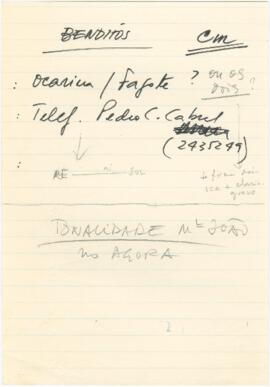 BENDITÓS Cm
: Ocarina / Fagote ? ou os dois ?
: Telef. Pedro C. Cabral
(2435249)
:
RÉ — — SOL
TONALIDADE Mª JOÃO
no AGORA